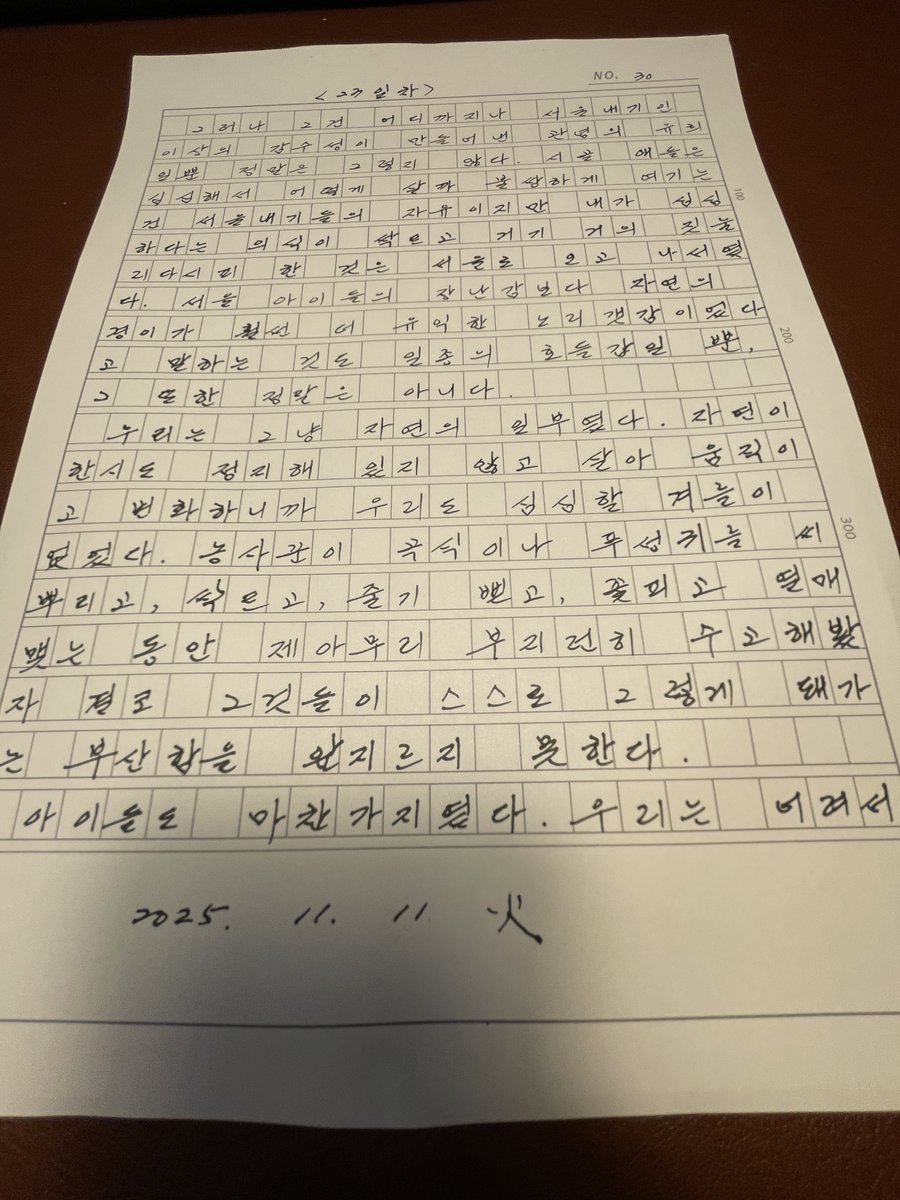 NO. 30
<23일차>
그러나 그건 어디까지나 서울내기인
이상의 감수성이 만들어낸 관념의 유희
일뿐 정말은 그렇지 않다. 시골 애들은
심심해서 어떻게 살까 불쌍하게 여기는
건 서울내기들의 자유이지만 내가 심심
하다는 의식이 싹트고 거기 거의 짓눌
리다시피 한 것은 서울로 오고 나서였
다. 서울 아이들의 장난감보다 자연의
경이가 훨씬 더 유익한 노리갯감이었다
고 말하는 것도 일종의 호들갑일 뿐,
그 또한 정말은 아니다.
우리는 그냥 자연의 일부였다. 자연이
한시도 정지해 있지 않고 살아 움직이
고 변화하니까 우리도 심심할 겨를이
없었다. 농사꾼이 곡식이나 푸성귀를 씨
뿌리고, 싹트고, 줄기 뻗고, 꽃피고 열매
맺는 동안 제아무리 부지런히 수고해봤
자 결코 그것들이 스스로 그렇게 돼가
는 부산함을 앞지르지 못한다.
아이들도 마찬가지였다. 우리는 어려서
100
200
300
2025. 11. 11 火